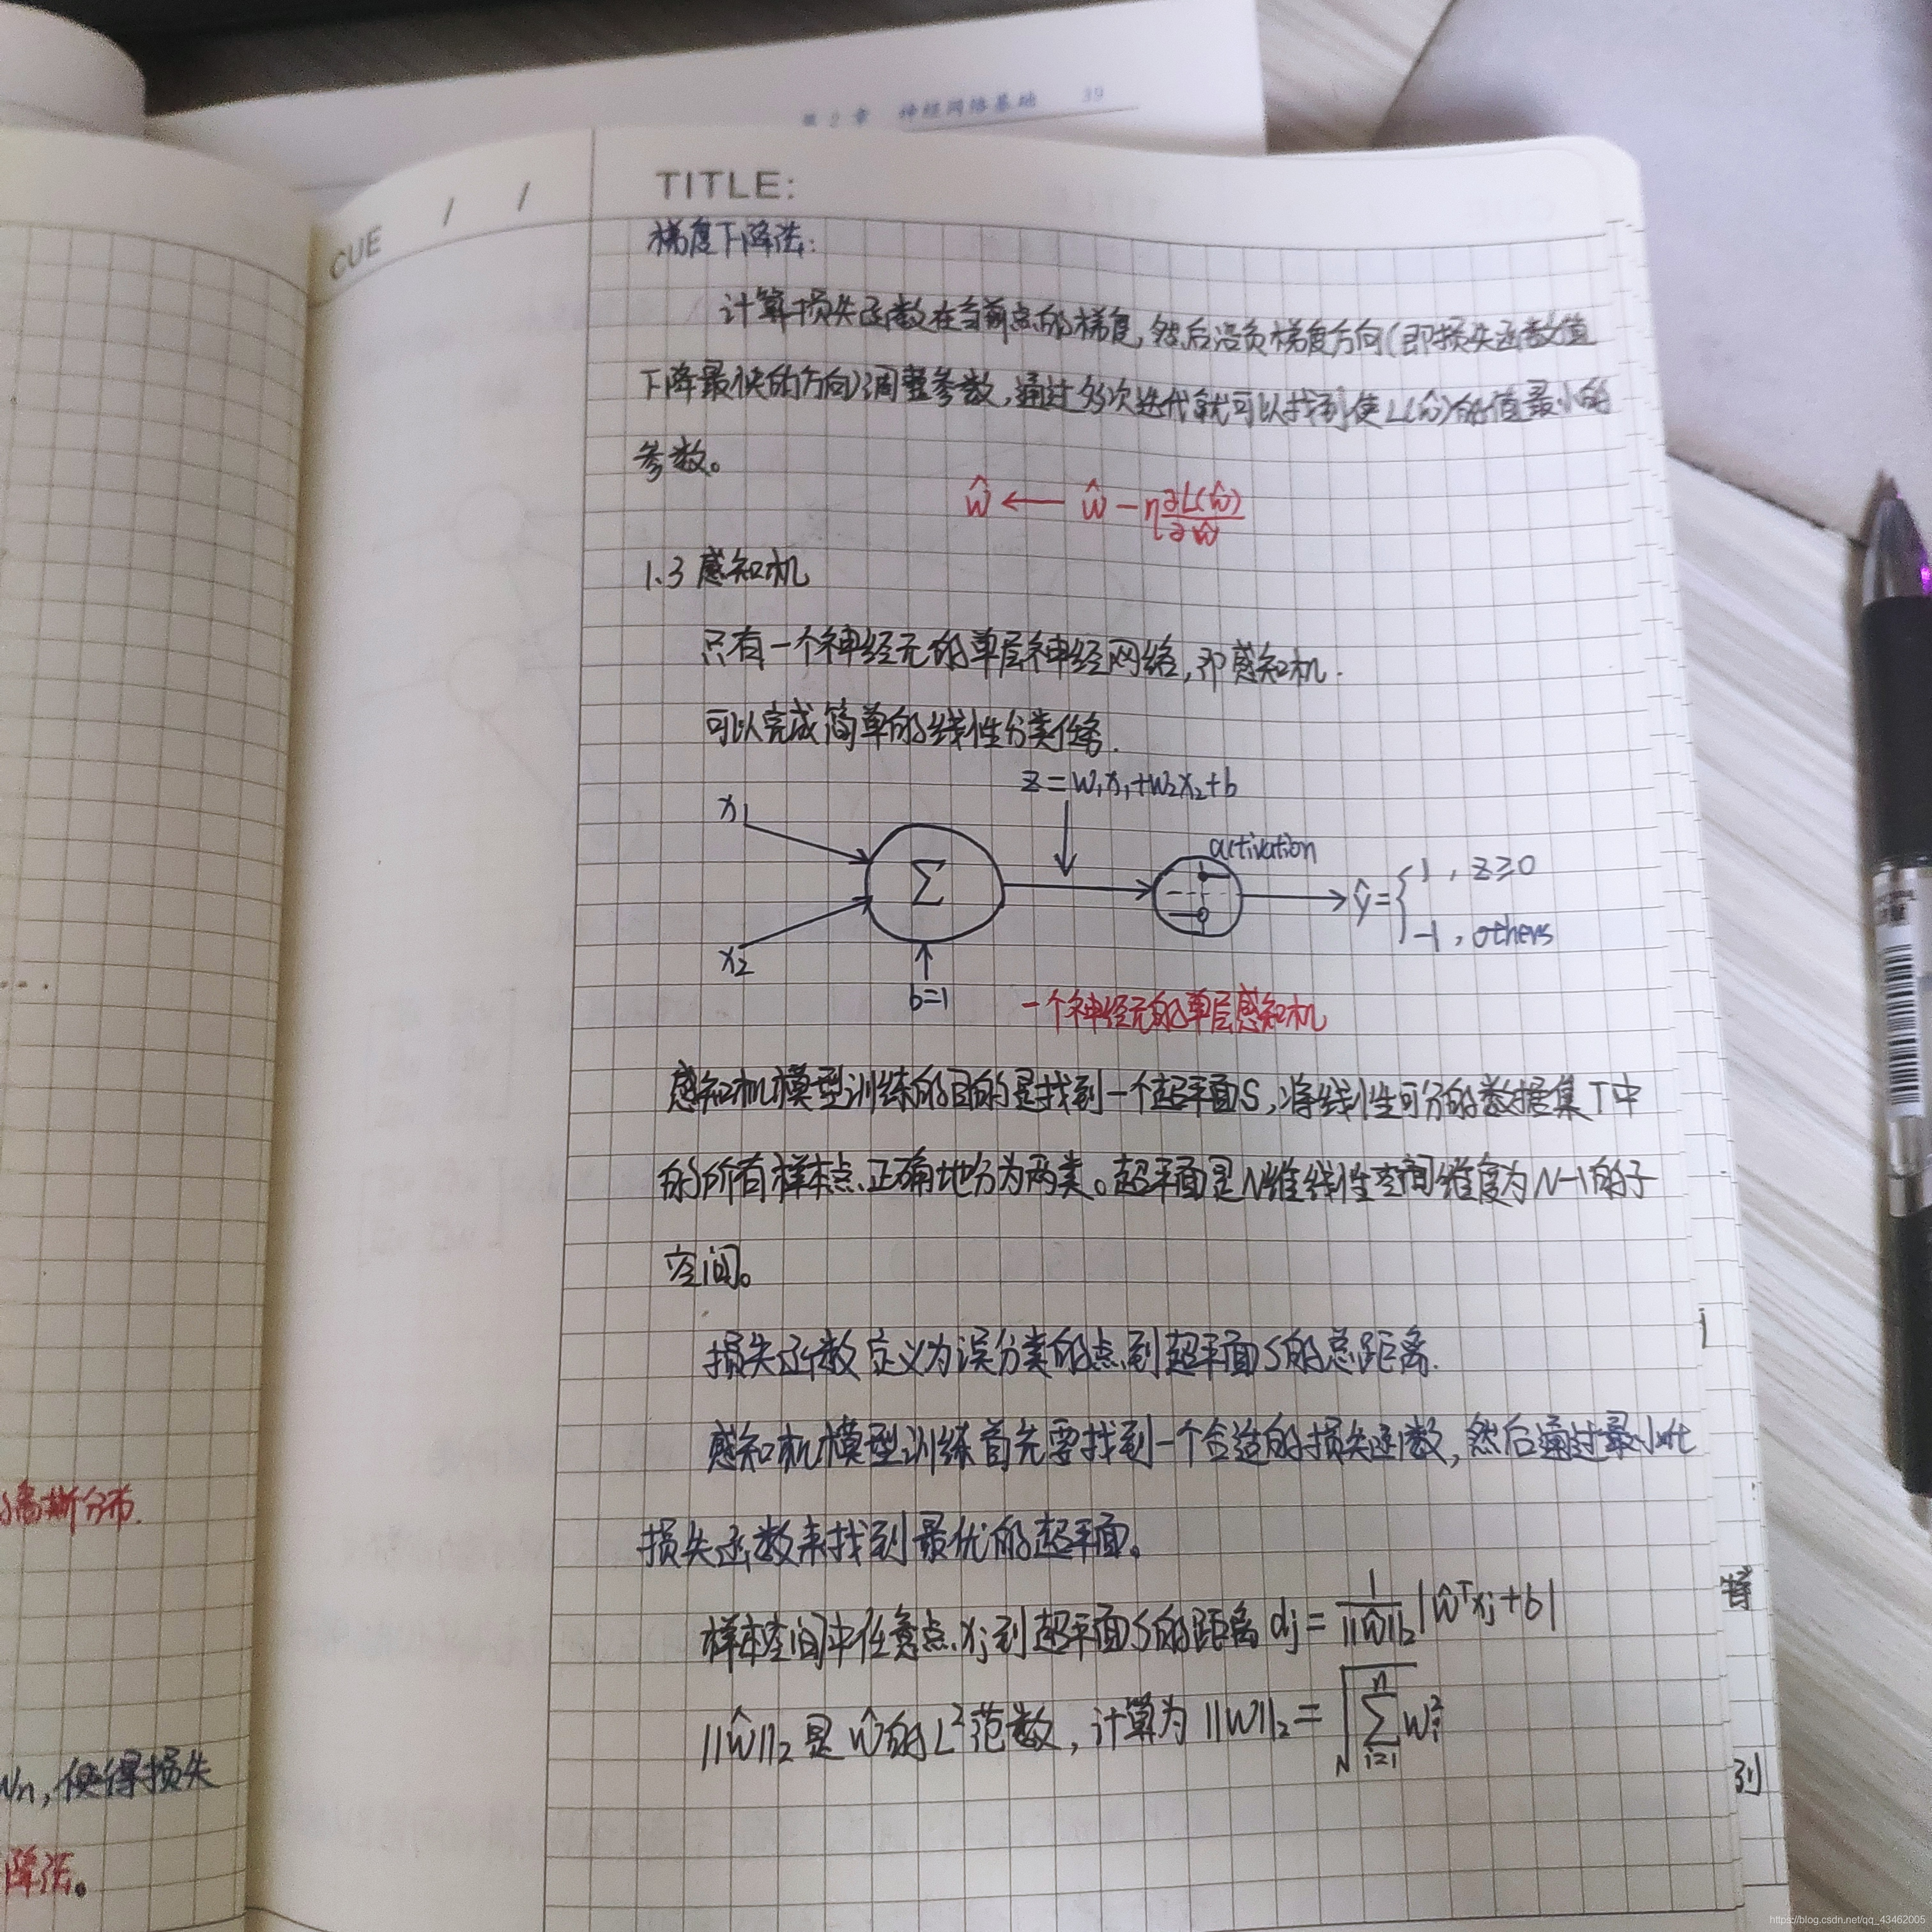 第2章 神经网络基础 39
CUE / /
TITLE:
梯度下降法:
计算损失函数在当前点的梯度,然后沿负梯度方向(即损失函数值
下降最快的方向)调整参数,通过多次迭代就可以找到使L(ŵ)的值最小的
参数。
ŵ ← ŵ - η ∂L(ŵ)/∂ŵ
1.3 感知机
只有一个神经元的单层神经网络,即感知机.
可以完成简单的线性分类任务.
z=w₁x₁+w₂x₂+b
x₁
activation
Σ
ŷ={1, z≥0
-1, others
x₂
b=1
一个神经元的单层感知机
感知机模型训练的目的是找到一个超平面S,将线性可分的数据集T中
的所有样本点正确地分为两类。超平面是N维线性空间维度为N-1的子
空间。
损失函数定义为误分类的点到超平面S的总距离.
感知机模型训练首先要找到一个合适的损失函数,然后通过最小化
损失函数来找到最优的超平面。
样本空间中任意点xj到超平面S的距离dj= 1/||ŵ||₂ |ŵᵀxj+b|
||ŵ||₂是ŵ的L²范数,计算为||w||₂=√(Σᵢ₌₁ⁿ wᵢ²)
高斯分布.
wn,使得损失
降法。
到
https://blog.csdn.net/qq_43462005